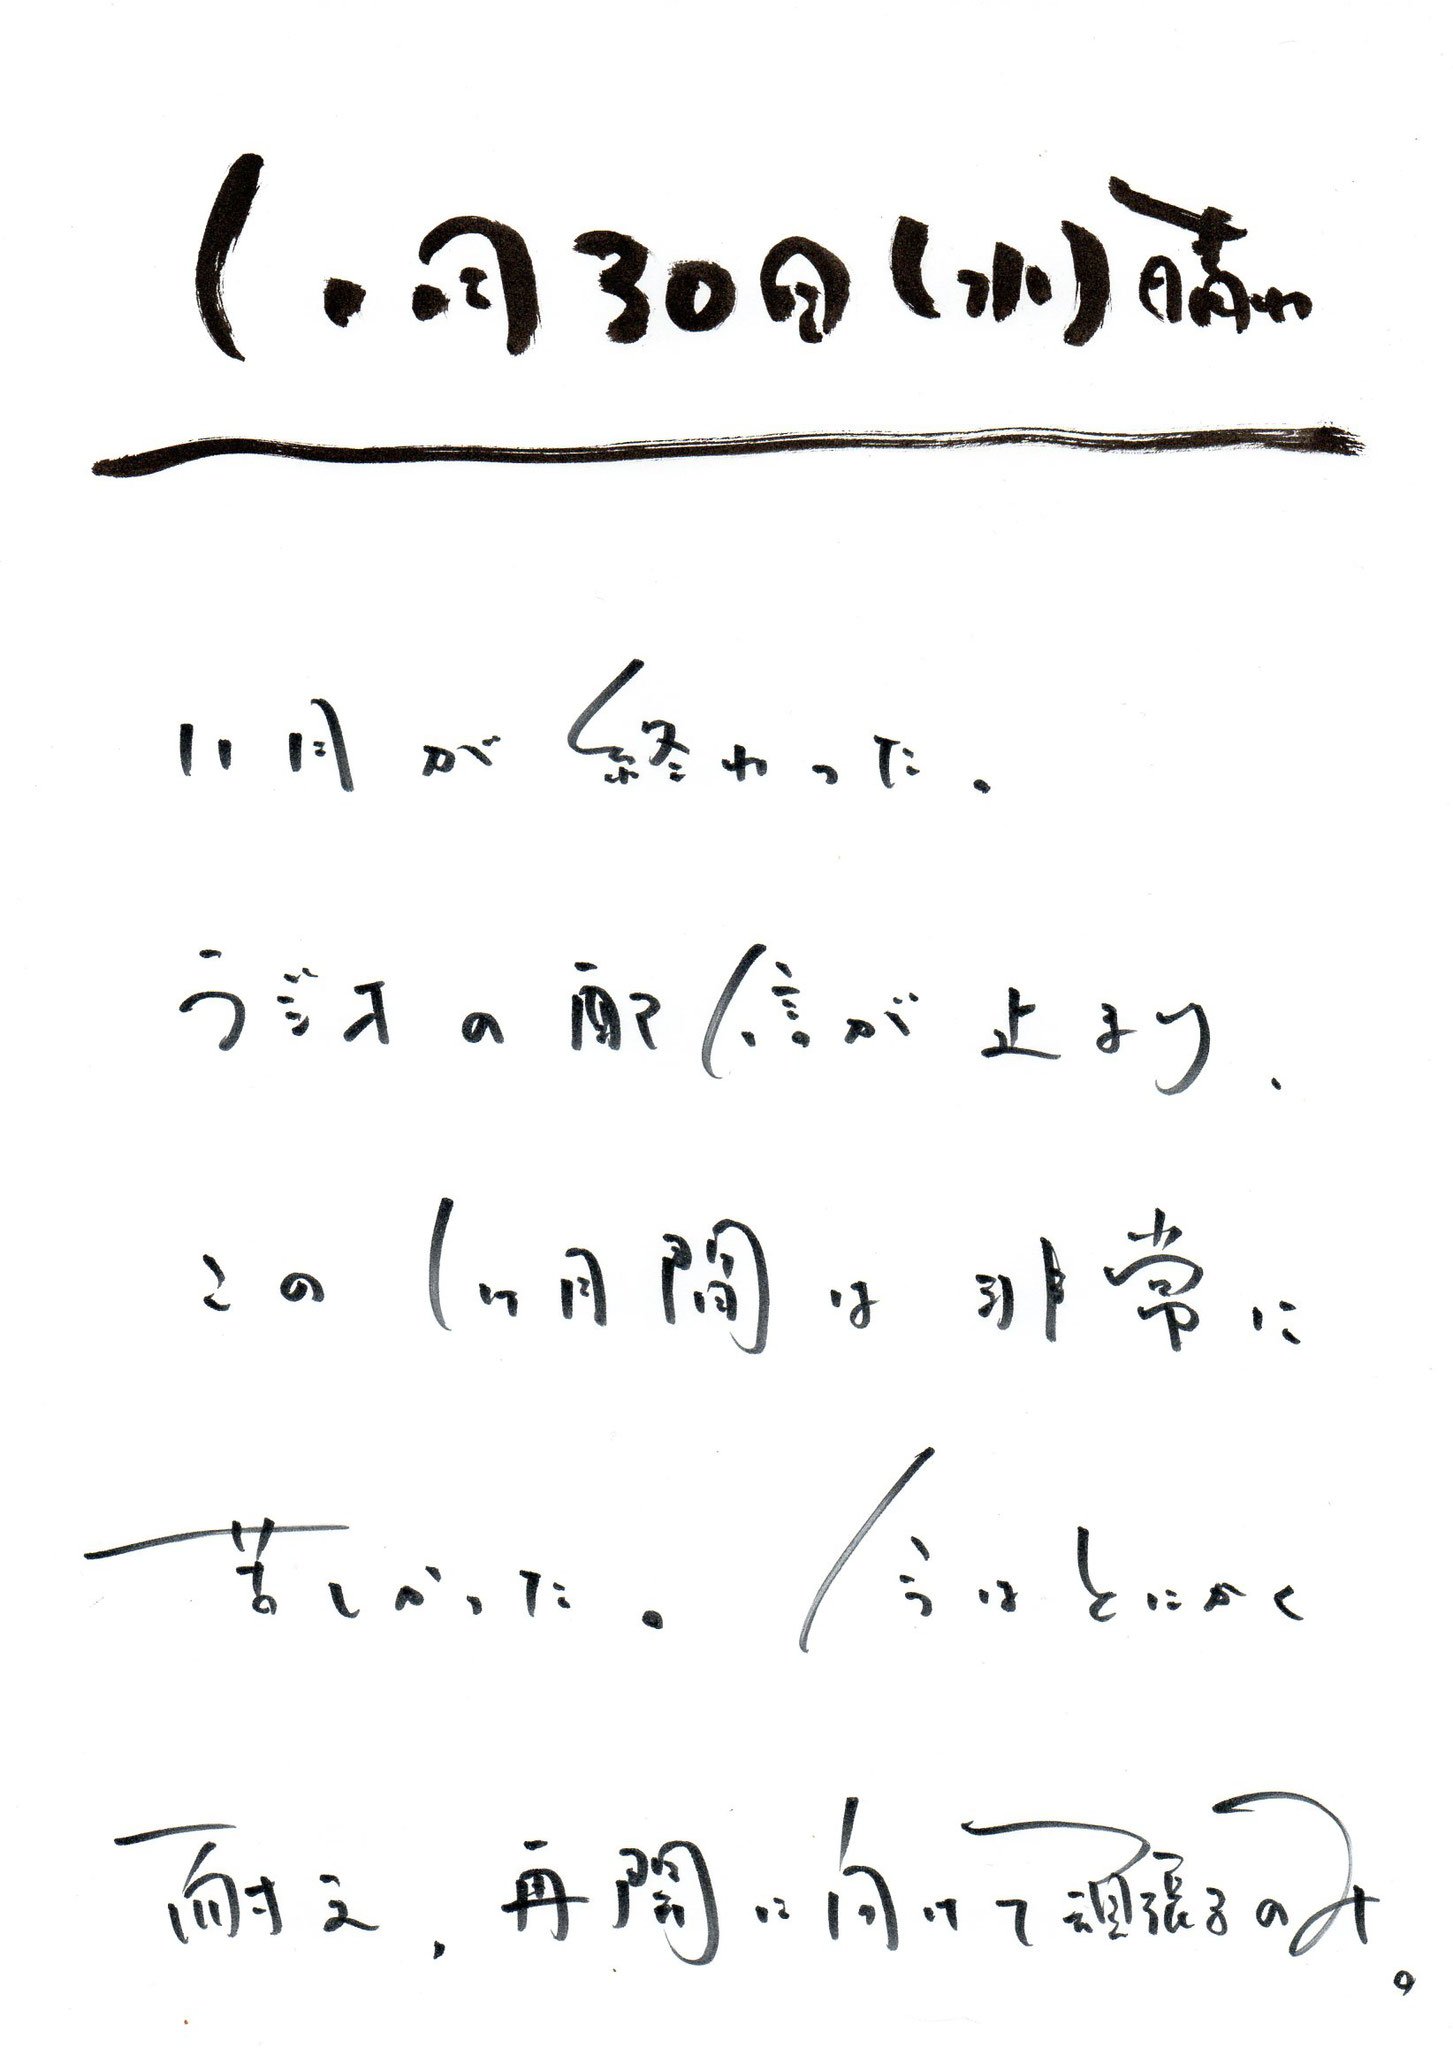 11月30日(水)晴れ
11月が終わった。
ラジオの配信が止まり、
この1ヶ月間は非常に
苦しかった。今はとにかく
耐え、再開に向けて頑張るのみ。